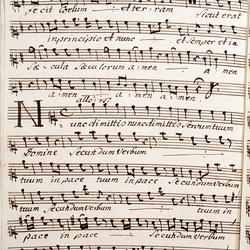 fecit Coelum et terram Sicut erat
in principio et nunc et semper et in
Sæcula Sæculorum amen amen
amen amen amen
Nunc dimittis nunc dimittis servum tuum
Domine Secundum Verbum
tuum in pace tuum in pace Secundum Verbum
tuum Secundum Verbum tuum in
pace in pace Secundum Verbum